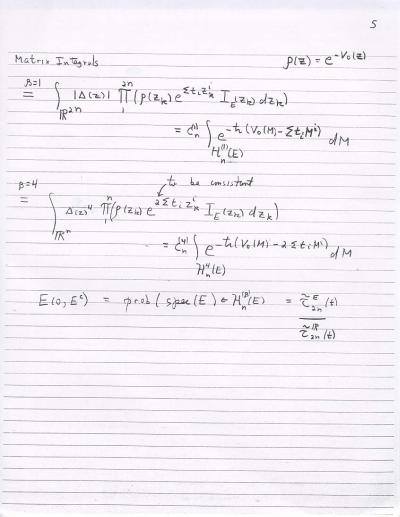 5
Matrix Integrals ρ(z) = e^{-V₀(z)}
β=1
= ∫_{ℝ^{2n}} |Δ(z)| ∏_1^{2n} (ρ(z_k) e^{Σ t_i z_k^i} I_E(z_k) dz_k)
= c_n^{(1)} ∫_{H_n^{(1)}(E)} e^{-tr(V₀(M) - Σ t_i M^i)} dM
to be consistent
β=4
= ∫_{ℝ^n} Δ(z)^4 ∏_1^n (ρ(z_k) e^{2 Σ t_i z_k^i} I_E(z_k) dz_k)
= c_n^{(4)} ∫_{H_n^4(E)} e^{-tr(V₀(M) - 2 Σ t_i M^i)} dM
E(0, E^c) = prob( spec(E) ∈ H_n^{(β)}(E) = τ̃_{2n}^E(t) / τ̃_{2n}^ℝ(t)